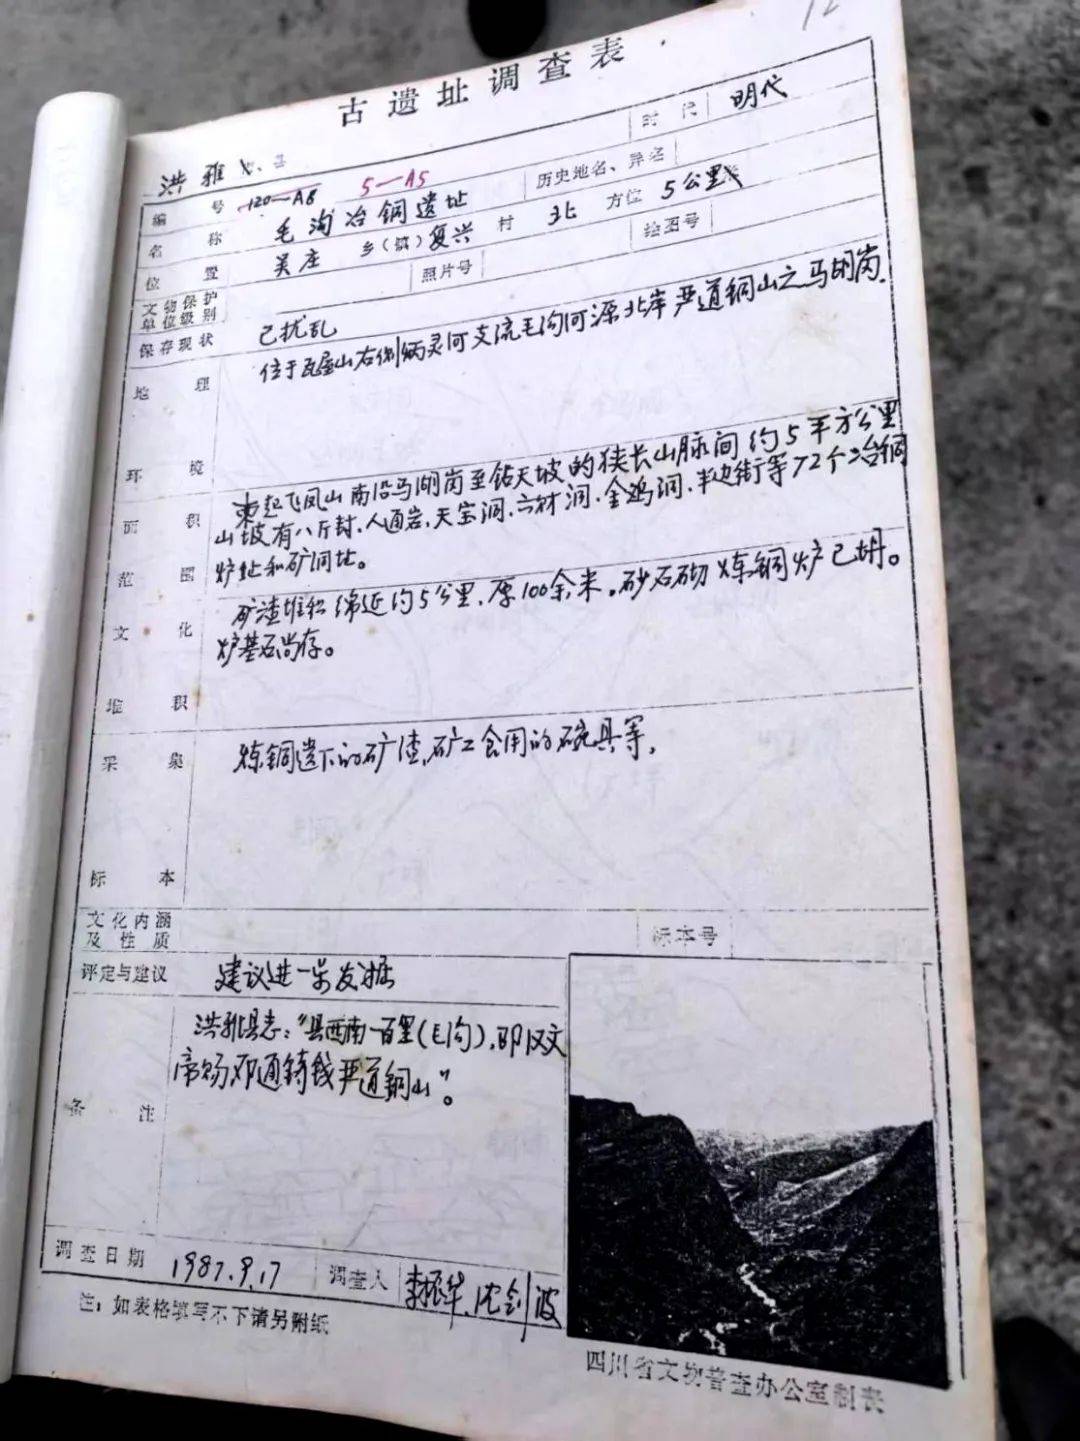 12
古遗址调查表
洪雅 县
时代 明代
编号 120—A8 5—A5
历史地名、异名
名称 毛沟冶铜遗址
位置 吴庄 乡(镇) 复兴 村 北 方位 5公里
文物保护单位级别 照片号 绘图号
保存现状 已扰乱
地理环境 位于瓦屋山右侧炳灵河支流毛沟河源北岸严道铜山之马胡岗.
面积范围 東起飞凤山南沿马湖岗至钻天坡的狭长山脉间约5平方公里
山坡有八斤封、人通岩、天宝洞、六材洞、金鸡洞、半边街等72个冶铜
炉址和矿洞址。
文化堆积 矿渣堆积绵延约5公里,厚100余米。砂石砌炼铜炉已坍。
炉基石尚存。
采集标本 炼铜遗下的矿渣,矿工食用的碗具等,
文化内涵及性质 标本号
评定与建议 建议进一步发掘
备注 洪雅县志:"县西南一百里(毛沟),即汉文
帝赐邓通铸钱严道铜山"。
调查日期 1987.9.17 调查人 李振华、沈剑波
注:如表格填写不下请另附纸
四川省文物普查办公室制表